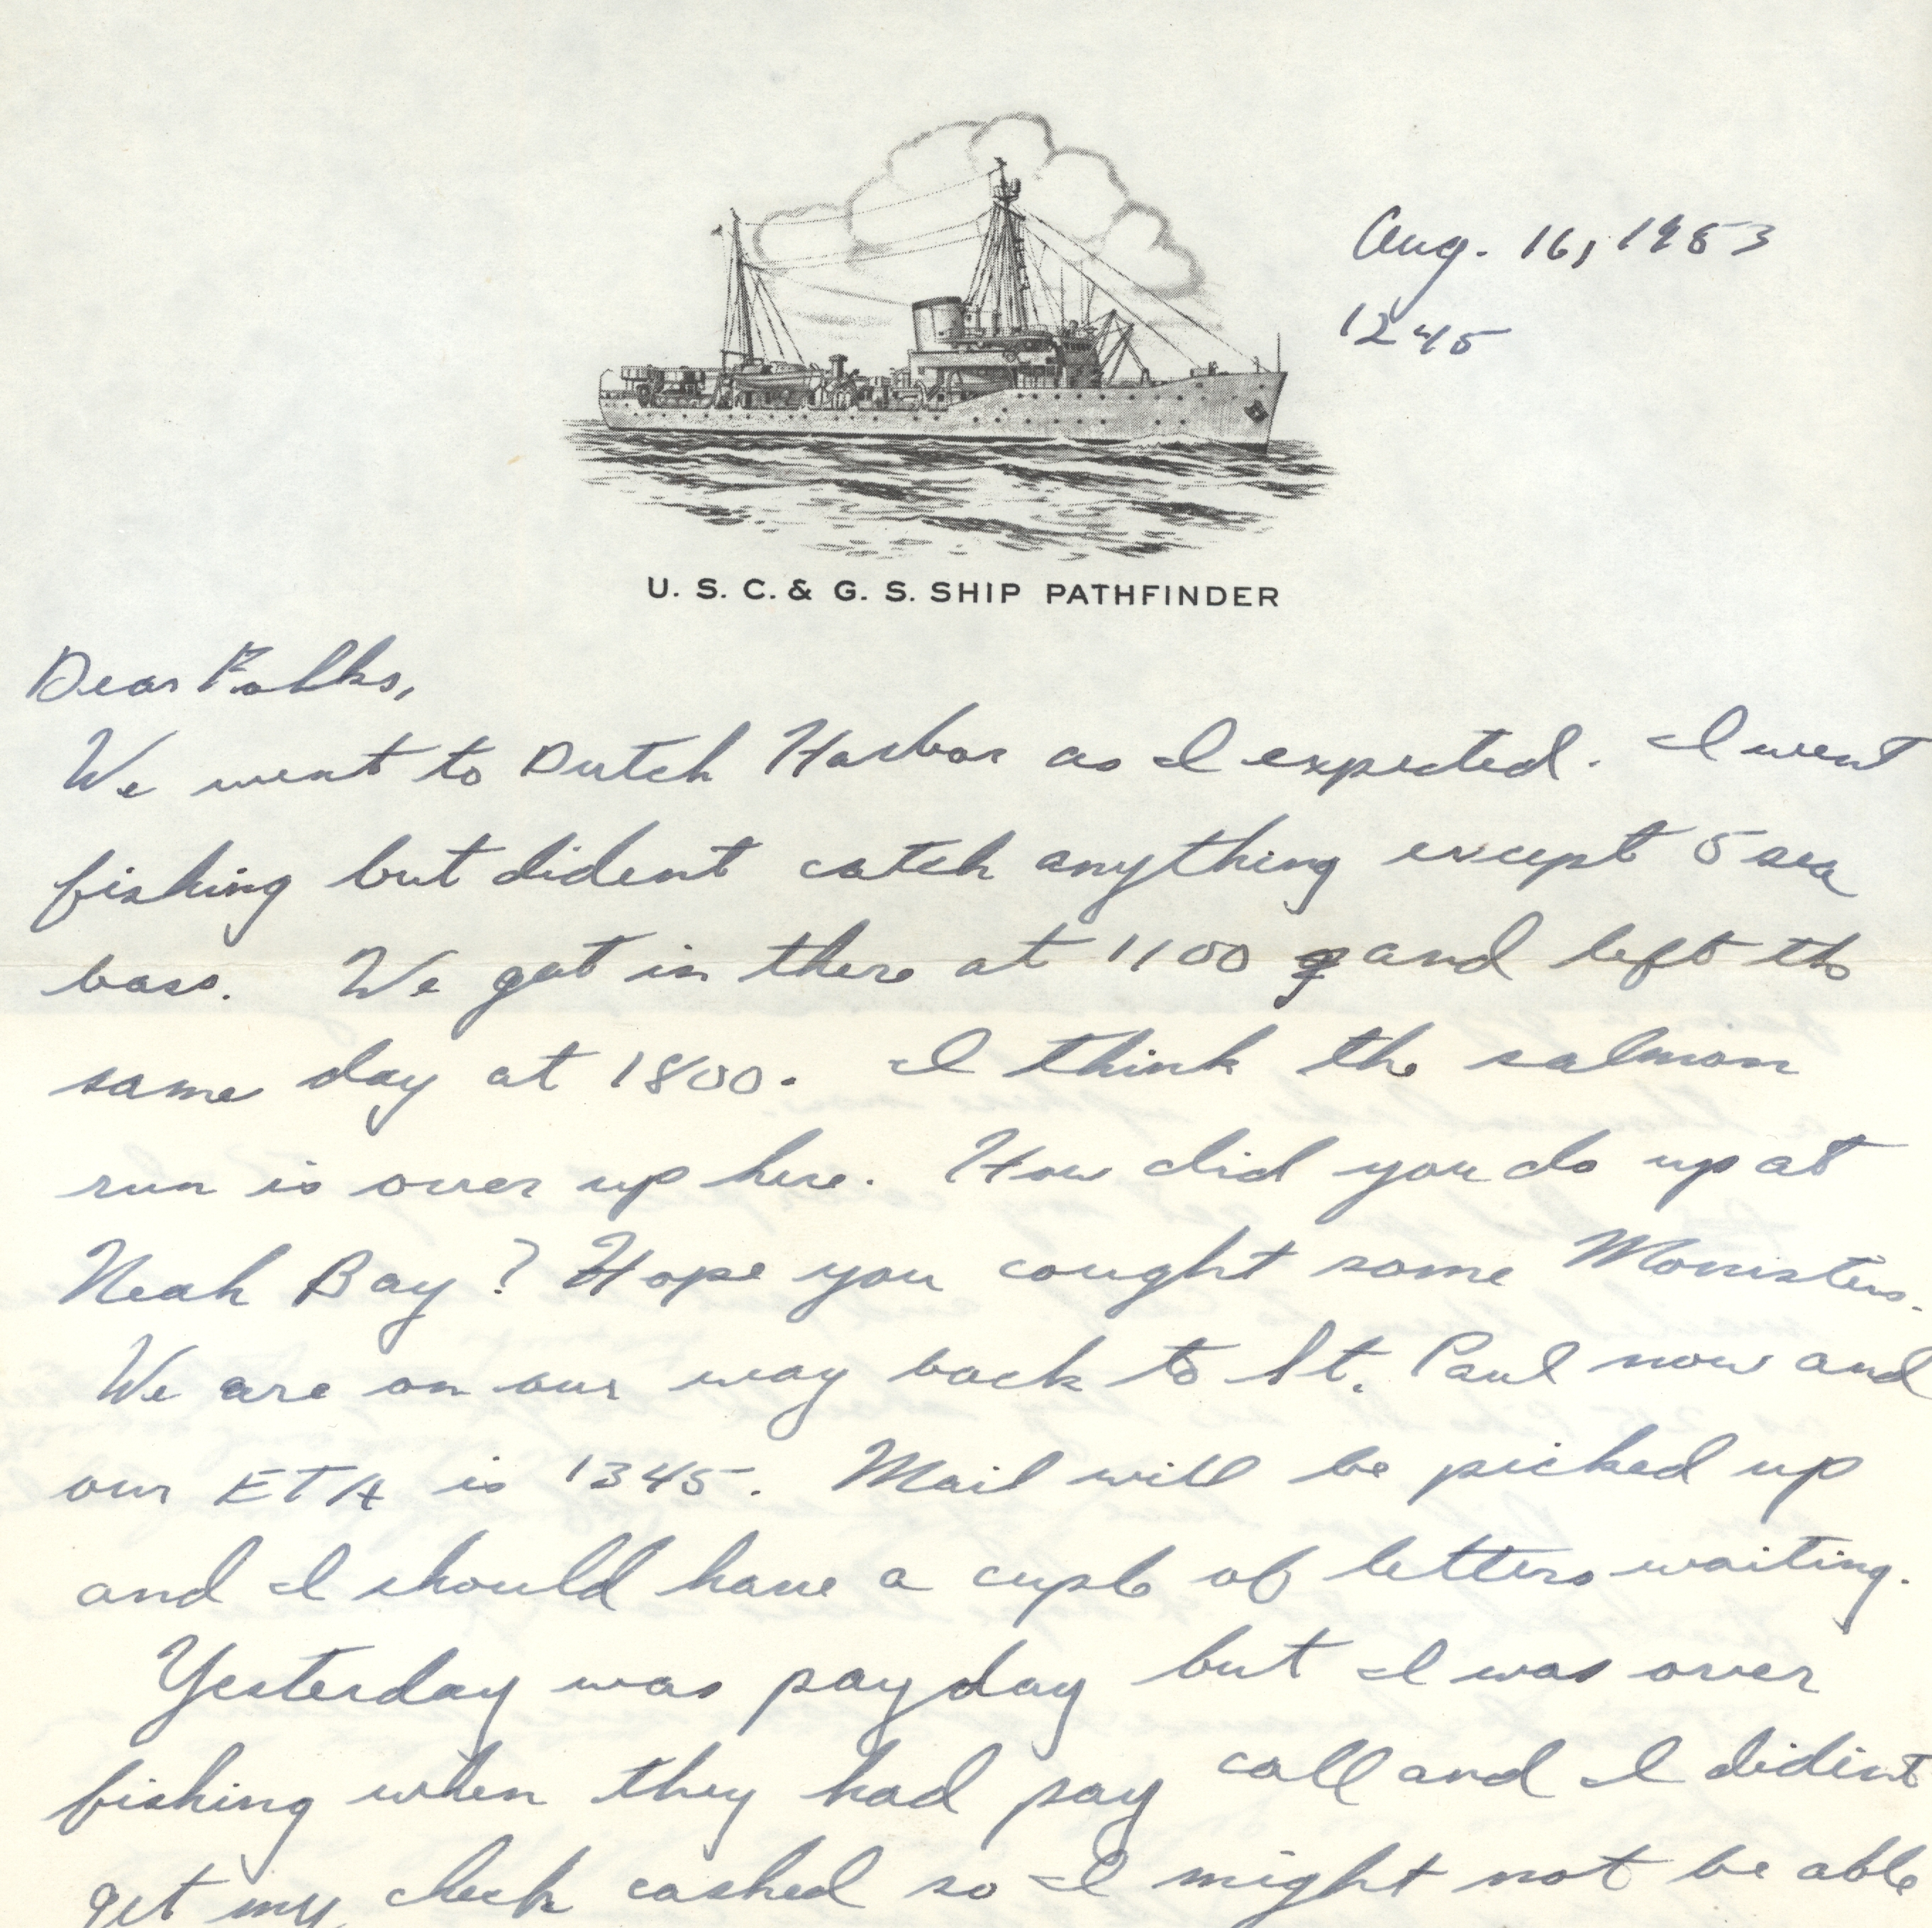 Aug. 16, 1953
1245
U. S. C. & G. S. SHIP PATHFINDER
Dear Folks,
We went to Dutch Harbor as I expected. I went
fishing but dident catch anything except 5 sea
bass. We got in there at 1100 and left the
same day at 1800. I think the salmon
run is over up here. How did you do up at
Neah Bay? Hope you cought some Monisters.
We are on our way back to St. Paul now and
our ETA is 1345. Mail will be picked up
and I should have a cuple of letters waiting.
Yesterday was payday but I was over
fishing when they had pay call and I dident
get my check cashed so I might not be able